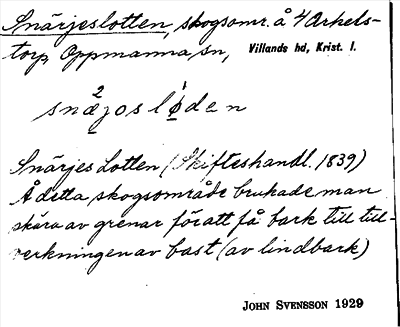 Snärjeslotten, skogsomr. å 4 Arkels-
torp Oppmanna sn, Villands hd, Krist. l.
snæ2joslø̀den
Snärjes Lotten (Skifteshandl. 1839)
Å detta skogsområde brukade man
skära av grenar för att få bark till till-
verkningen av bast (av lindbark)
JOHN SVENSSON 1929